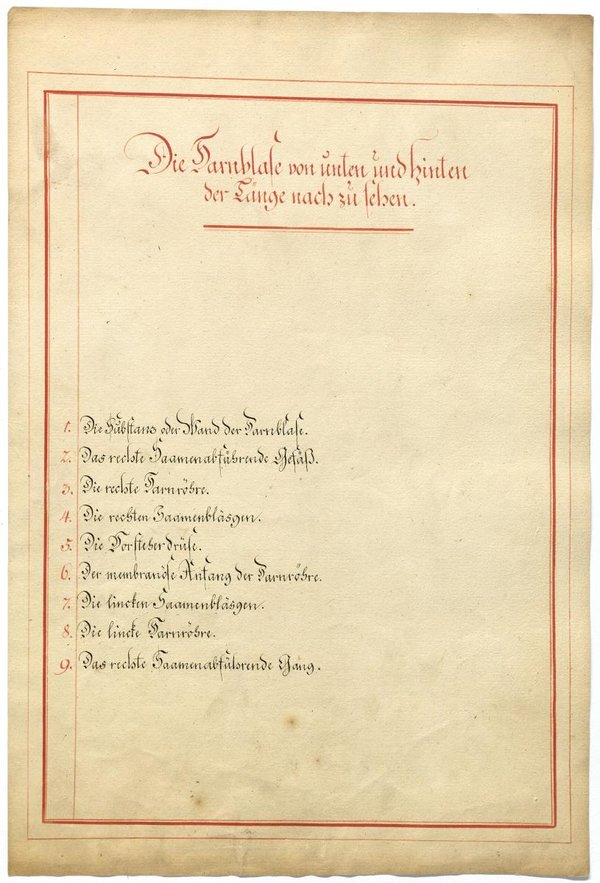 Die Harnblase von unten und hinten
der Länge nach zu sehen.
1. Die Substanz oder Wand der Harnblase.
2. Das rechte Saamenabführende Gefäß.
3. Die rechte Harnröhre.
4. Die rechten Saamenbläsgen.
5. Die Vorsteher drüse.
6. Der membranöse Anfang der Harnröhre.
7. Die lincken Saamenbläsgen.
8. Die lincke Harnröhre.
9. Das rechte Saamenabführende Gang.